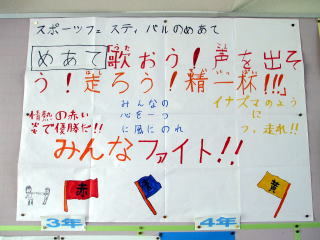 スポーツフェスティバルのめあて
めあて 歌おう！声を出そ
う！走ろう！精一杯!!!
情熱の赤い
炎で優勝だ!!
みんなの
心を一つ
に風にのれ
イナズマのよう
に
つっ走れ!!
みんなファイト!!
赤
青
黄
3年
4年